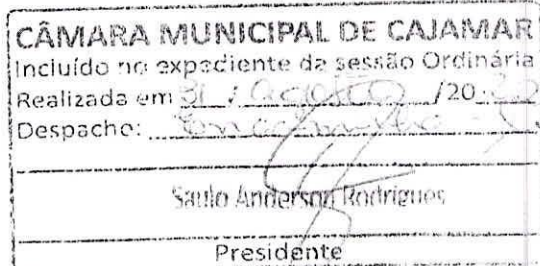 CÂMARA MUNICIPAL DE CAJAMAR
Incluído no expediente da sessão Ordinária
Realizada em 31 / Agosto /20
Despacho:
Saulo Anderson Rodrigues
Presidente